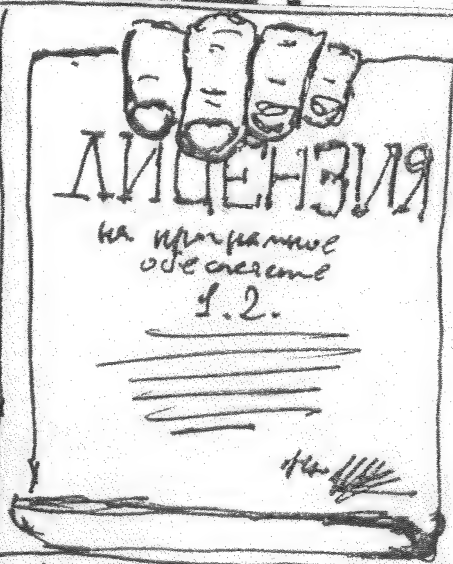 ЛИЦЕНЗИЯ
на програмное
обеспечение
1.2.